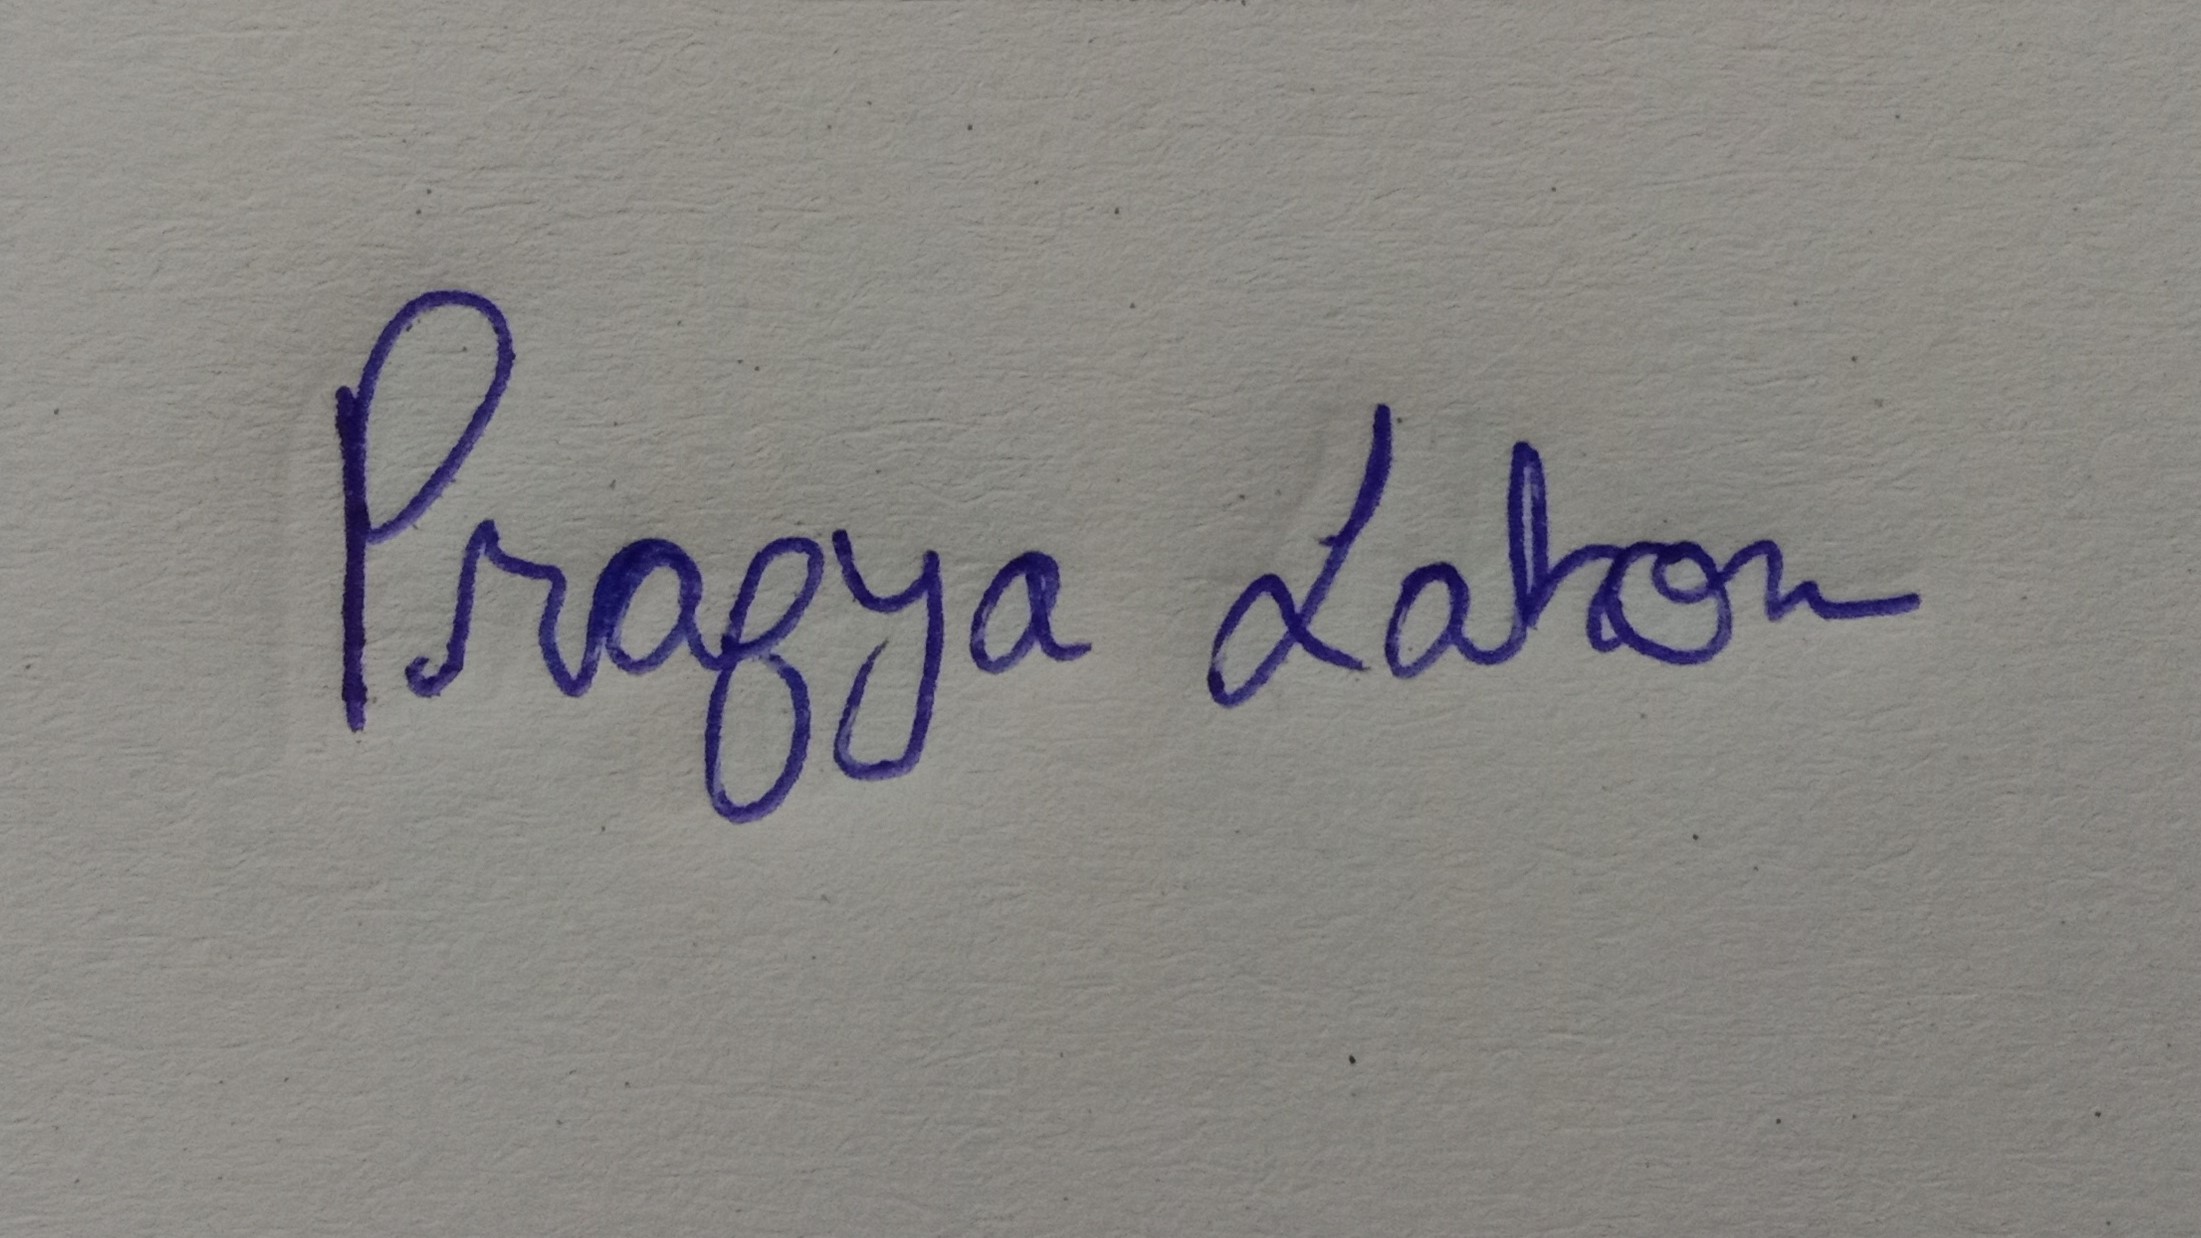 Pragya Latron